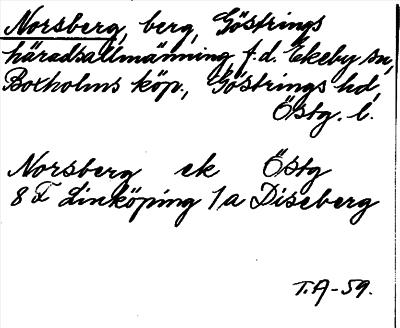 Norsberg, berg, Göstrings
häradsallmänning, f.d. Ekeby sn,
Boxholms köp., Göstrings hd,
Östg. l.
Norsberg ek Östg
8 F Linköping 1a Diseberg
T.A-59.